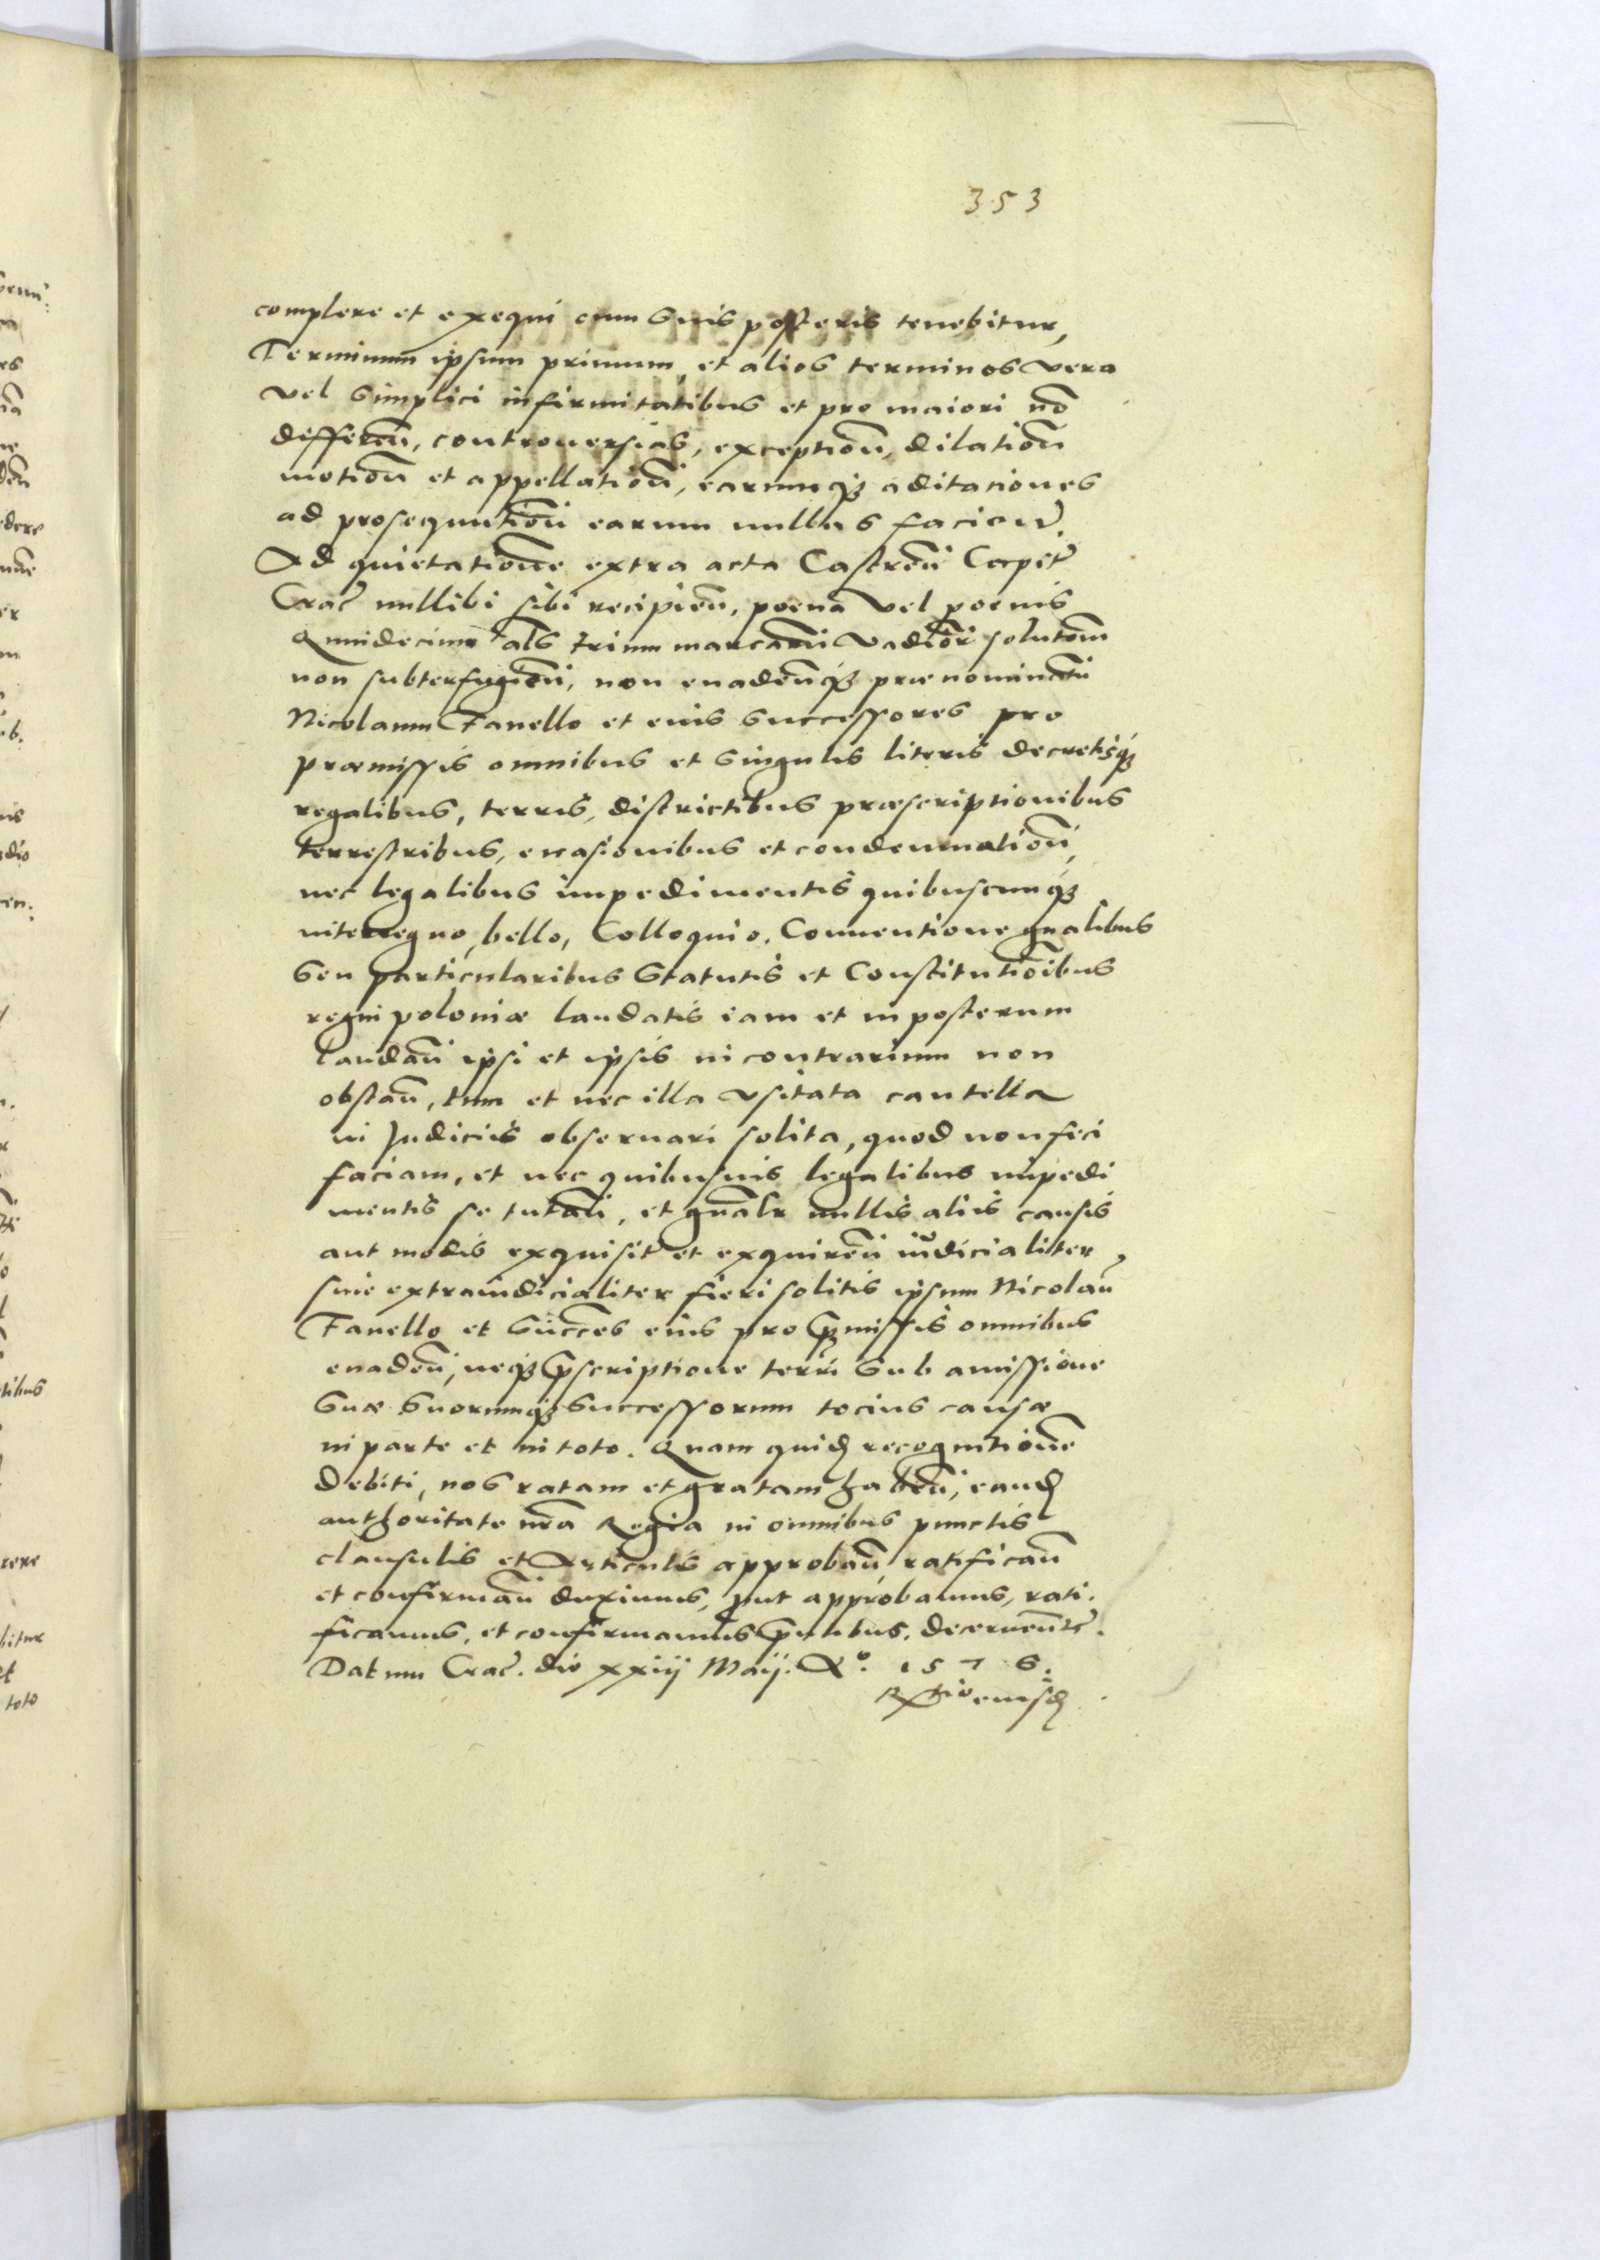 353
complere et exequi cum suis posteris tenebitur,
Terminum ipsum primum, et alios terminos vera
vel simplici infirmitatibus et pro maiori nō
differeñ, controuersias, exceptioñ, dilatioñ
motioñ et appellatioñ, earumq3 aditationes
ad prosequutioñ earum nullas facieñ.
Ad quietationē extra acta Castreñ Capit̃
Crac̃ nullibi sibi recipieñ, poena vel poenis
Quindecim als trium marcarū vadior̃ solutōm
non subterfugieñ, non euadeñq3 praenominatū
Nicolaum Fanello et eius successores pro
praemissis omnibus et singulis literis decretisq3
regalibus, terris, districtibus praescriptionibus
terrestribus, euasionibus et condemnatioñ,
nec legalibus impedimentis quibuscunq3
interregno, bello, Colloquio, Conuentione gñalibus
seu particularibus statutis et Constitutiōibus
regni poloniae laudatis iam et in posterum
laudañ ipsi et ipsis in contrarium non
obstañ, tum et nec illa vsitata cautella
in Judiciis obseruari solita, quod non feci
faciam, et nec quibusuis legalibus impedi
mentis se tutañ, et gñalr nullis aliis causis
aut modis exquisit̃ et exquireñ iudicialiter,
siue extraiudicialiter fieri solitis ipsum Nicolaū
Fanello et succēs eius pro p̃missis omnibus
euadeñ, neq3 p̃scriptione terrī sub amissione
suae suorumq3 successorum tocius causae
in parte et in toto. Quam quid̃ recognitionē
debiti, nos ratam et gratam habeñ, eand̃
authoritate nrã Regia in omnibus punctis
clausulis et Articulis approbañ, ratificañ
et confirmañ duximus, put approbamus, rati.
ficamus, et confirmamus p̃ntibus. decerneñ etc̃.
Datum Crac̃. die xxiij Maij. Aº. 1576.
Rᵗⁱᵒ eiusd̃